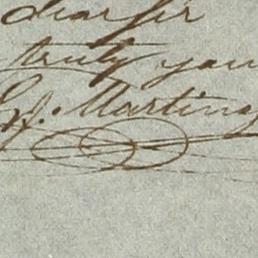 dear sir
truly you
Martin